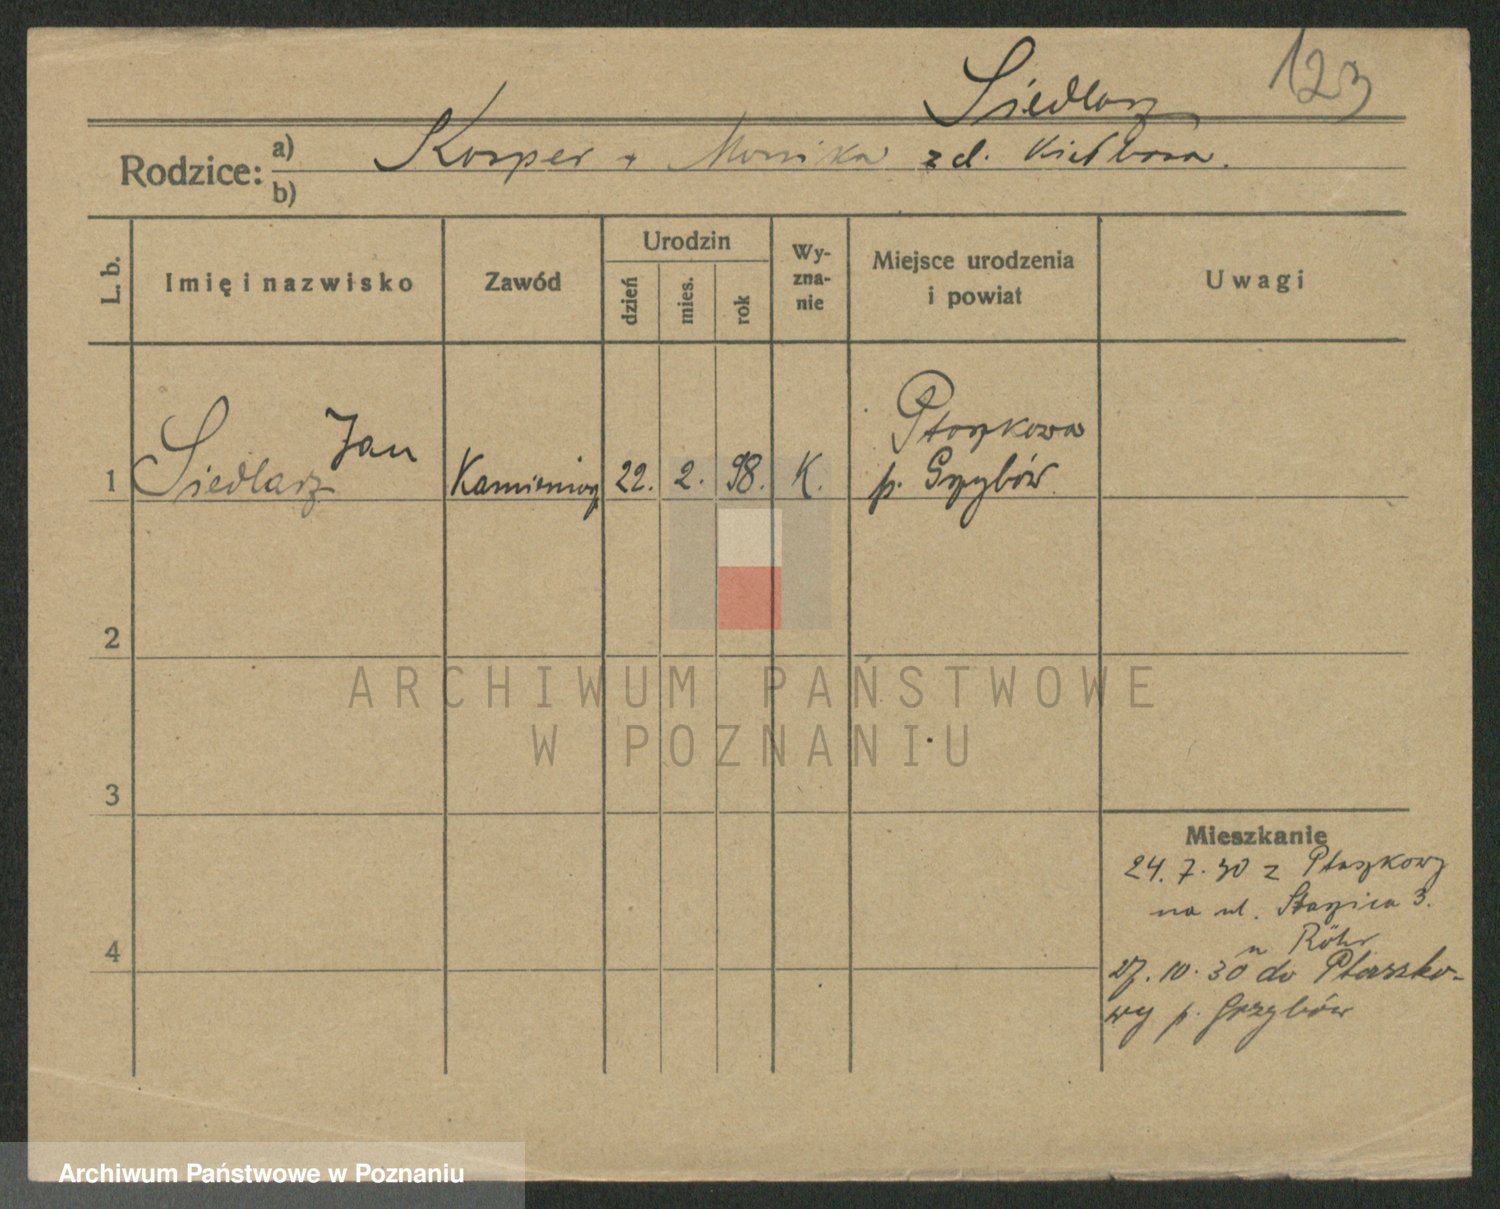 123
Siedlarz
Rodzice: a) b)
Kasper + Monika z d. Kiełbasa.
L. b.
Imię i nazwisko
Zawód
Urodzin
dzień
mies.
rok
Wy-
zna-
nie
Miejsce urodzenia
i powiat
Uwagi
1
Siedlarz Jan
Kamieniarz
22.
2.
98.
K.
Ptaszkowa
p. Grzybów
2
3
4
Mieszkanie
24. 7. 30 z Ptaszkowy
na ul. Staszica 3.
u Röhr
27. 10. 30 do Ptaszko-
wy p. Grzybów
ARCHIWUM PAŃSTWOWE
W POZNANIU
Archiwum Państwowe w Poznaniu